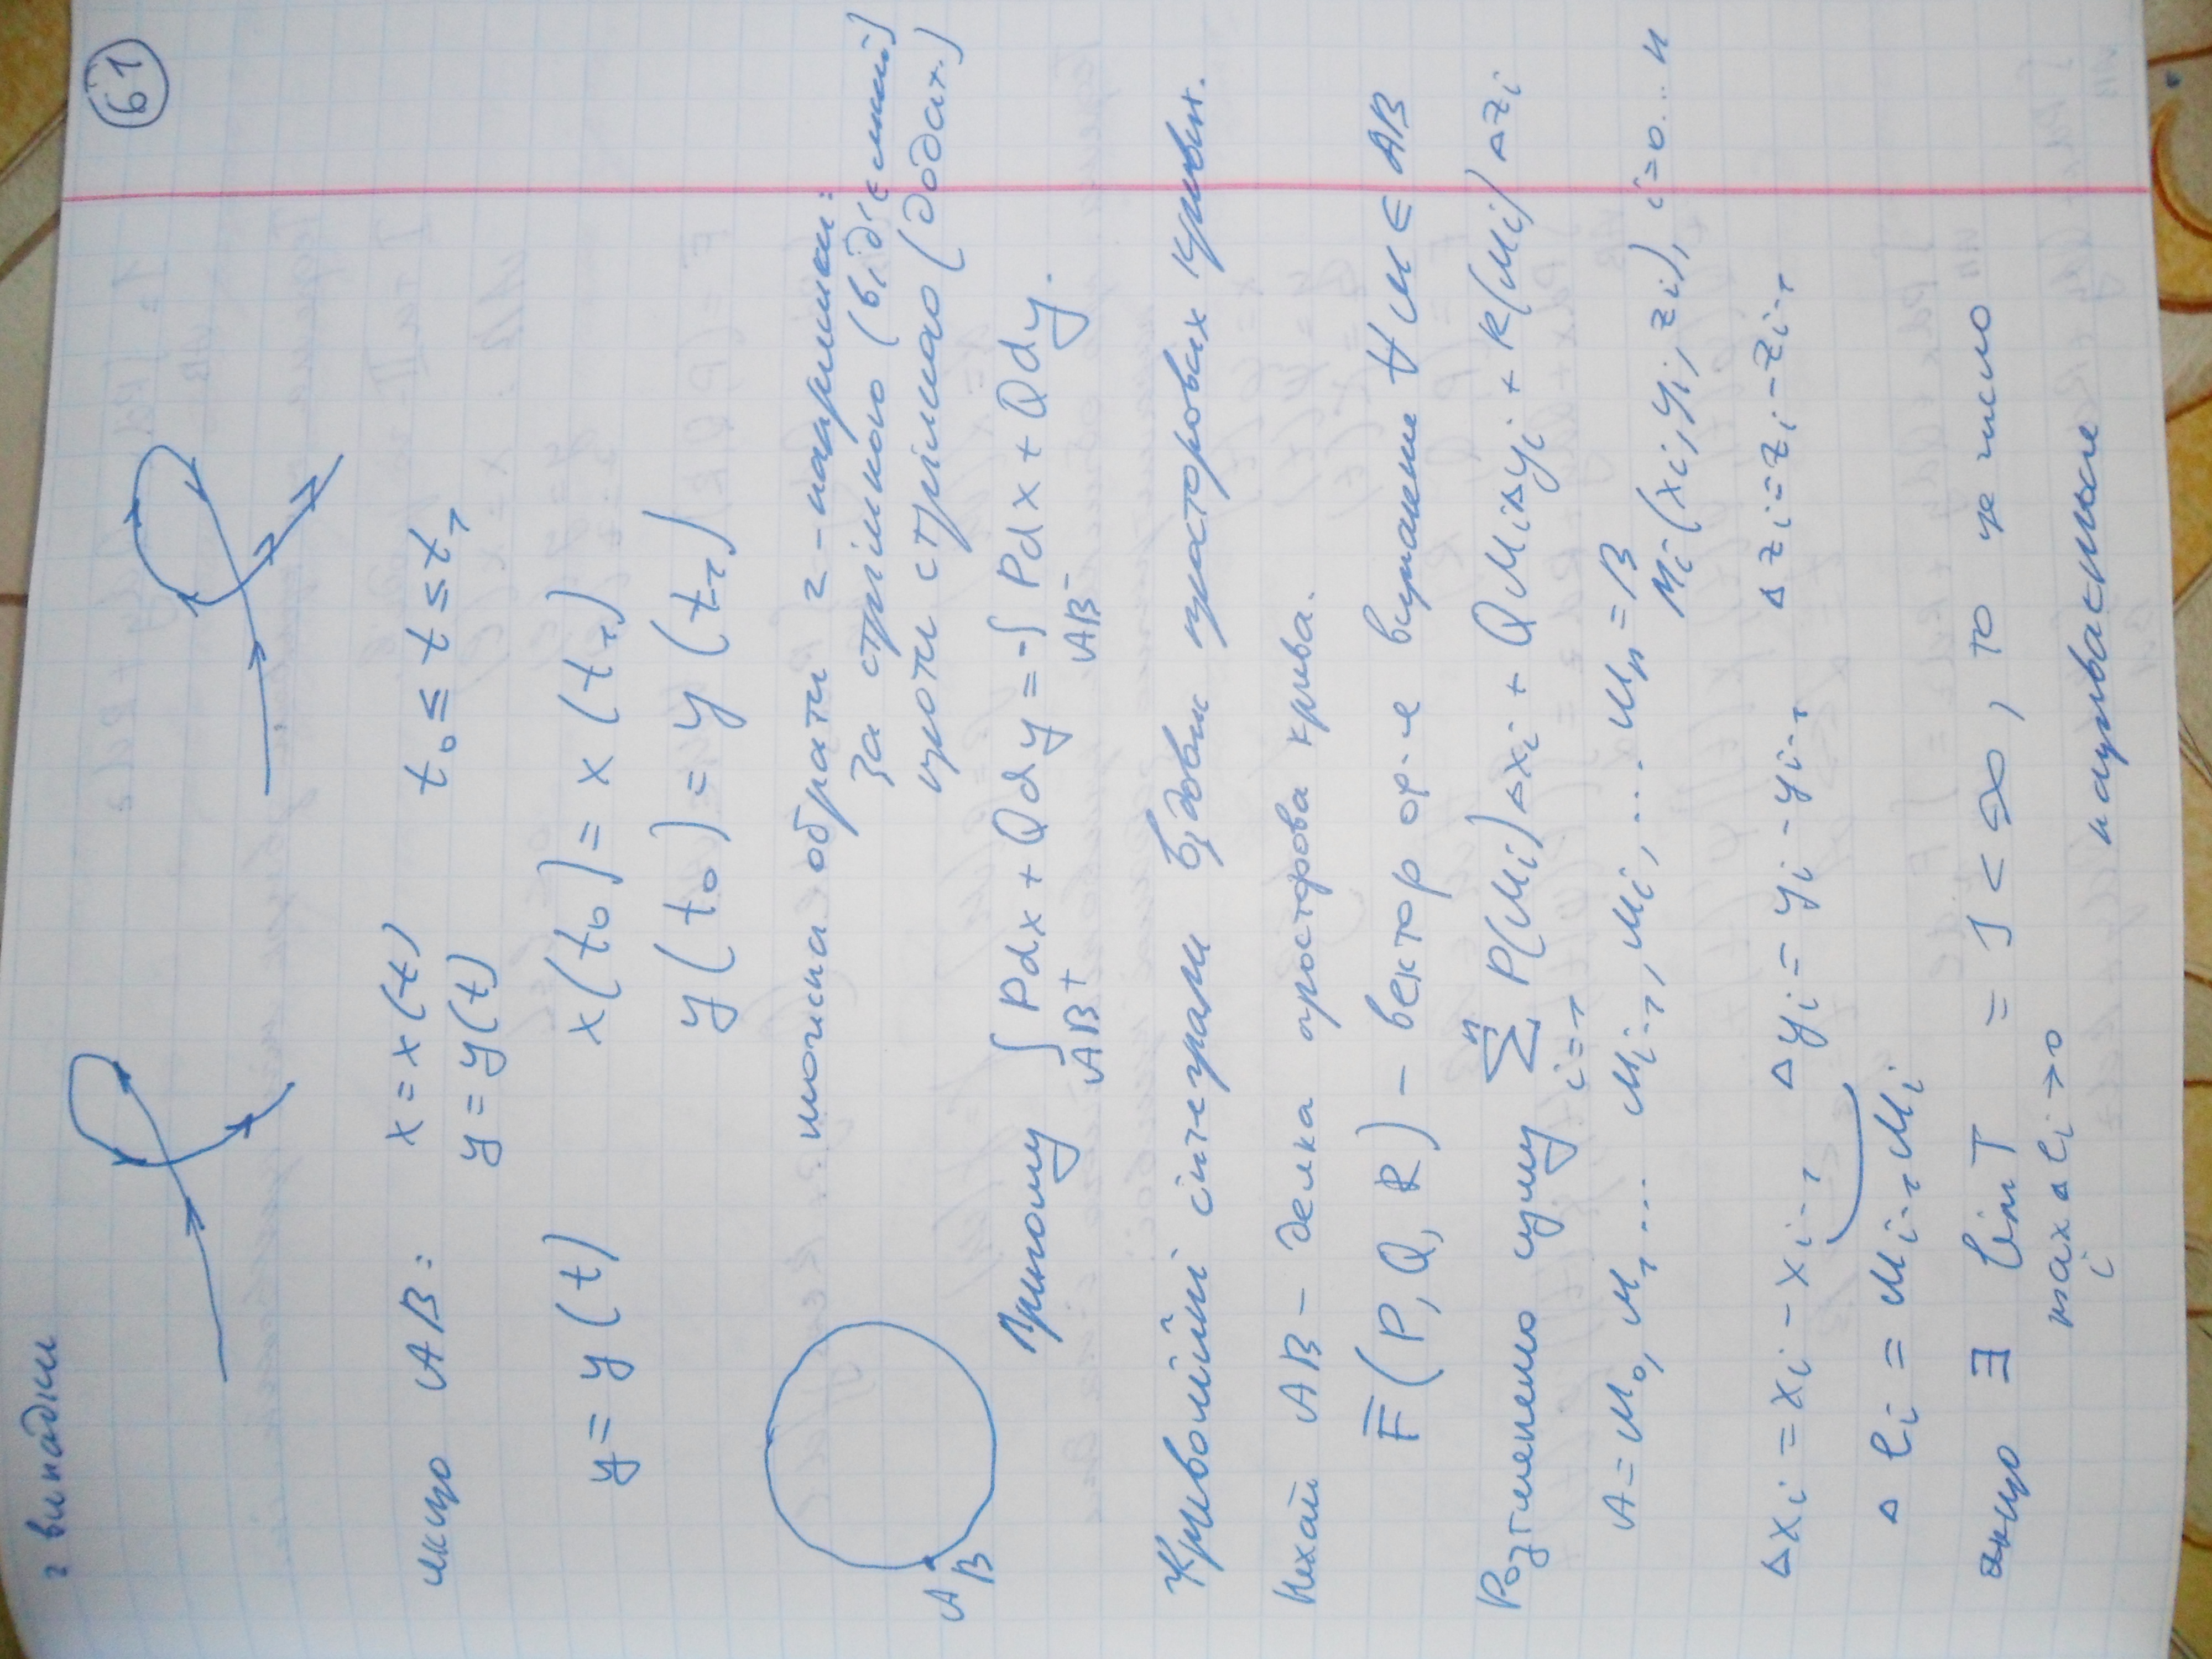 61
2 випадки
якщо AB: x = x(t) t₀ ≤ t ≤ t₁
y = y(t)
y = y(t) x(t₀) = x(t₁)
y(t₀) = y(t₁)
можна обрати 2 - напрямки:
за стрілкою (від'ємний)
проти стрілкою (додат.)
A B
Причому ∫ Pdx + Qdy = -∫ Pdx + Qdy.
AB⁺ AB⁻
Криволійні інтеграли вздовж просторових кривих.
Нехай AB - деяка просторова крива.
F̄(P, Q, R) - вектор ф-я визначне ∀ M ∈ AB
Розглянемо суму ∑ P(Mᵢ)△xᵢ + QMᵢ△yᵢ + R(Mᵢ)△zᵢ
n i=1
A = M₀, M₁ ... Mᵢ₋₁, Mᵢ, ... Mₙ = B
Mᵢ(xᵢ, yᵢ, zᵢ), i=0...n
△xᵢ = xᵢ - xᵢ₋₁ △yᵢ = yᵢ - yᵢ₋₁ △zᵢ = zᵢ - zᵢ₋₁
△lᵢ = Mᵢ₋₁Mᵢ
якщо ∃ lim T = J < ∞, то це число
max △lᵢ → 0
i
називається